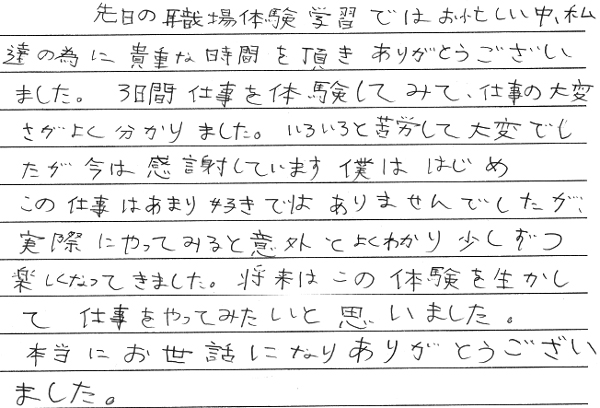 先日の職場体験学習ではお忙しい中、私
達の為に貴重な時間を頂きありがとうござい
ました。３日間仕事を体験してみて、仕事の大変
さがよく分かりました。いろいろと苦労して大変でし
たが今は感謝しています僕ははじめ
この仕事はあまり好きではありませんでしたが、
実際にやってみると意外とよくわかり少しずつ
楽しくなってきました。将来はこの体験を生かし
て仕事をやってみたいと思いました。
本当にお世話になりありがとうござい
ました。